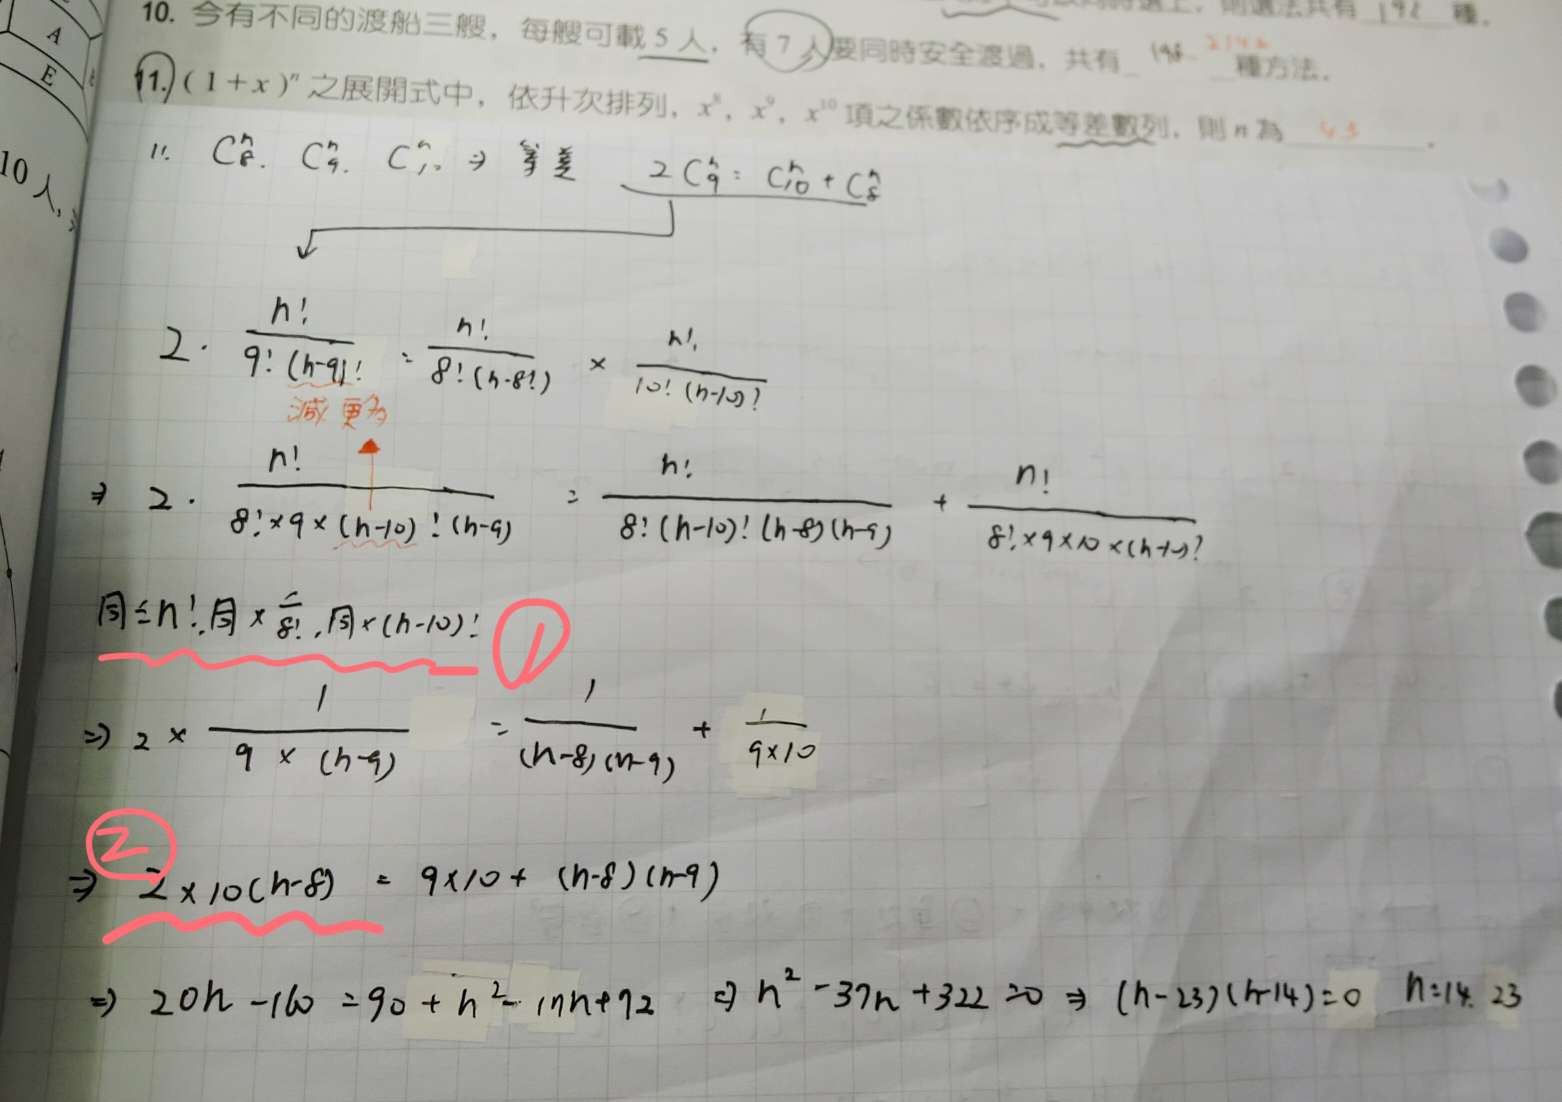 則選法共有 192 種.
10. 今有不同的渡船三艘，每艘可載 5 人，有 7 人要同時安全渡過，共有 種方法.
11. (1+x)ⁿ 之展開式中，依升次排列，x⁸，x⁹，x¹⁰ 項之係數依序成等差數列，則 n 為 .
A
E
10 人,
11. C₈ⁿ. C₉ⁿ. C₁₀ⁿ ⇒ 等差 2C₉ⁿ = C₁₀ⁿ + C₈ⁿ
2 · n!/9!(n-9)! = n!/8!(n-8!) × n!/10!(n-10)!
減更多
⇒ 2 · n!/8!×9×(n-10)!(n-9) = n!/8!(n-10)!(n-8)(n-9) + n!/8!×9×10×(n-10)!
同÷n!, 同×1/8!, 同×(n-10)! 1
⇒ 2 × 1/9×(n-9) = 1/(n-8)(n-9) + 1/9×10
2
⇒ 2×10(n-8) = 9×10 + (n-8)(n-9)
⇒ 20n-160 = 90+n²-17n+72 ⇒ n²-37n+322=0 ⇒ (n-23)(n-14)=0 n=14. 23